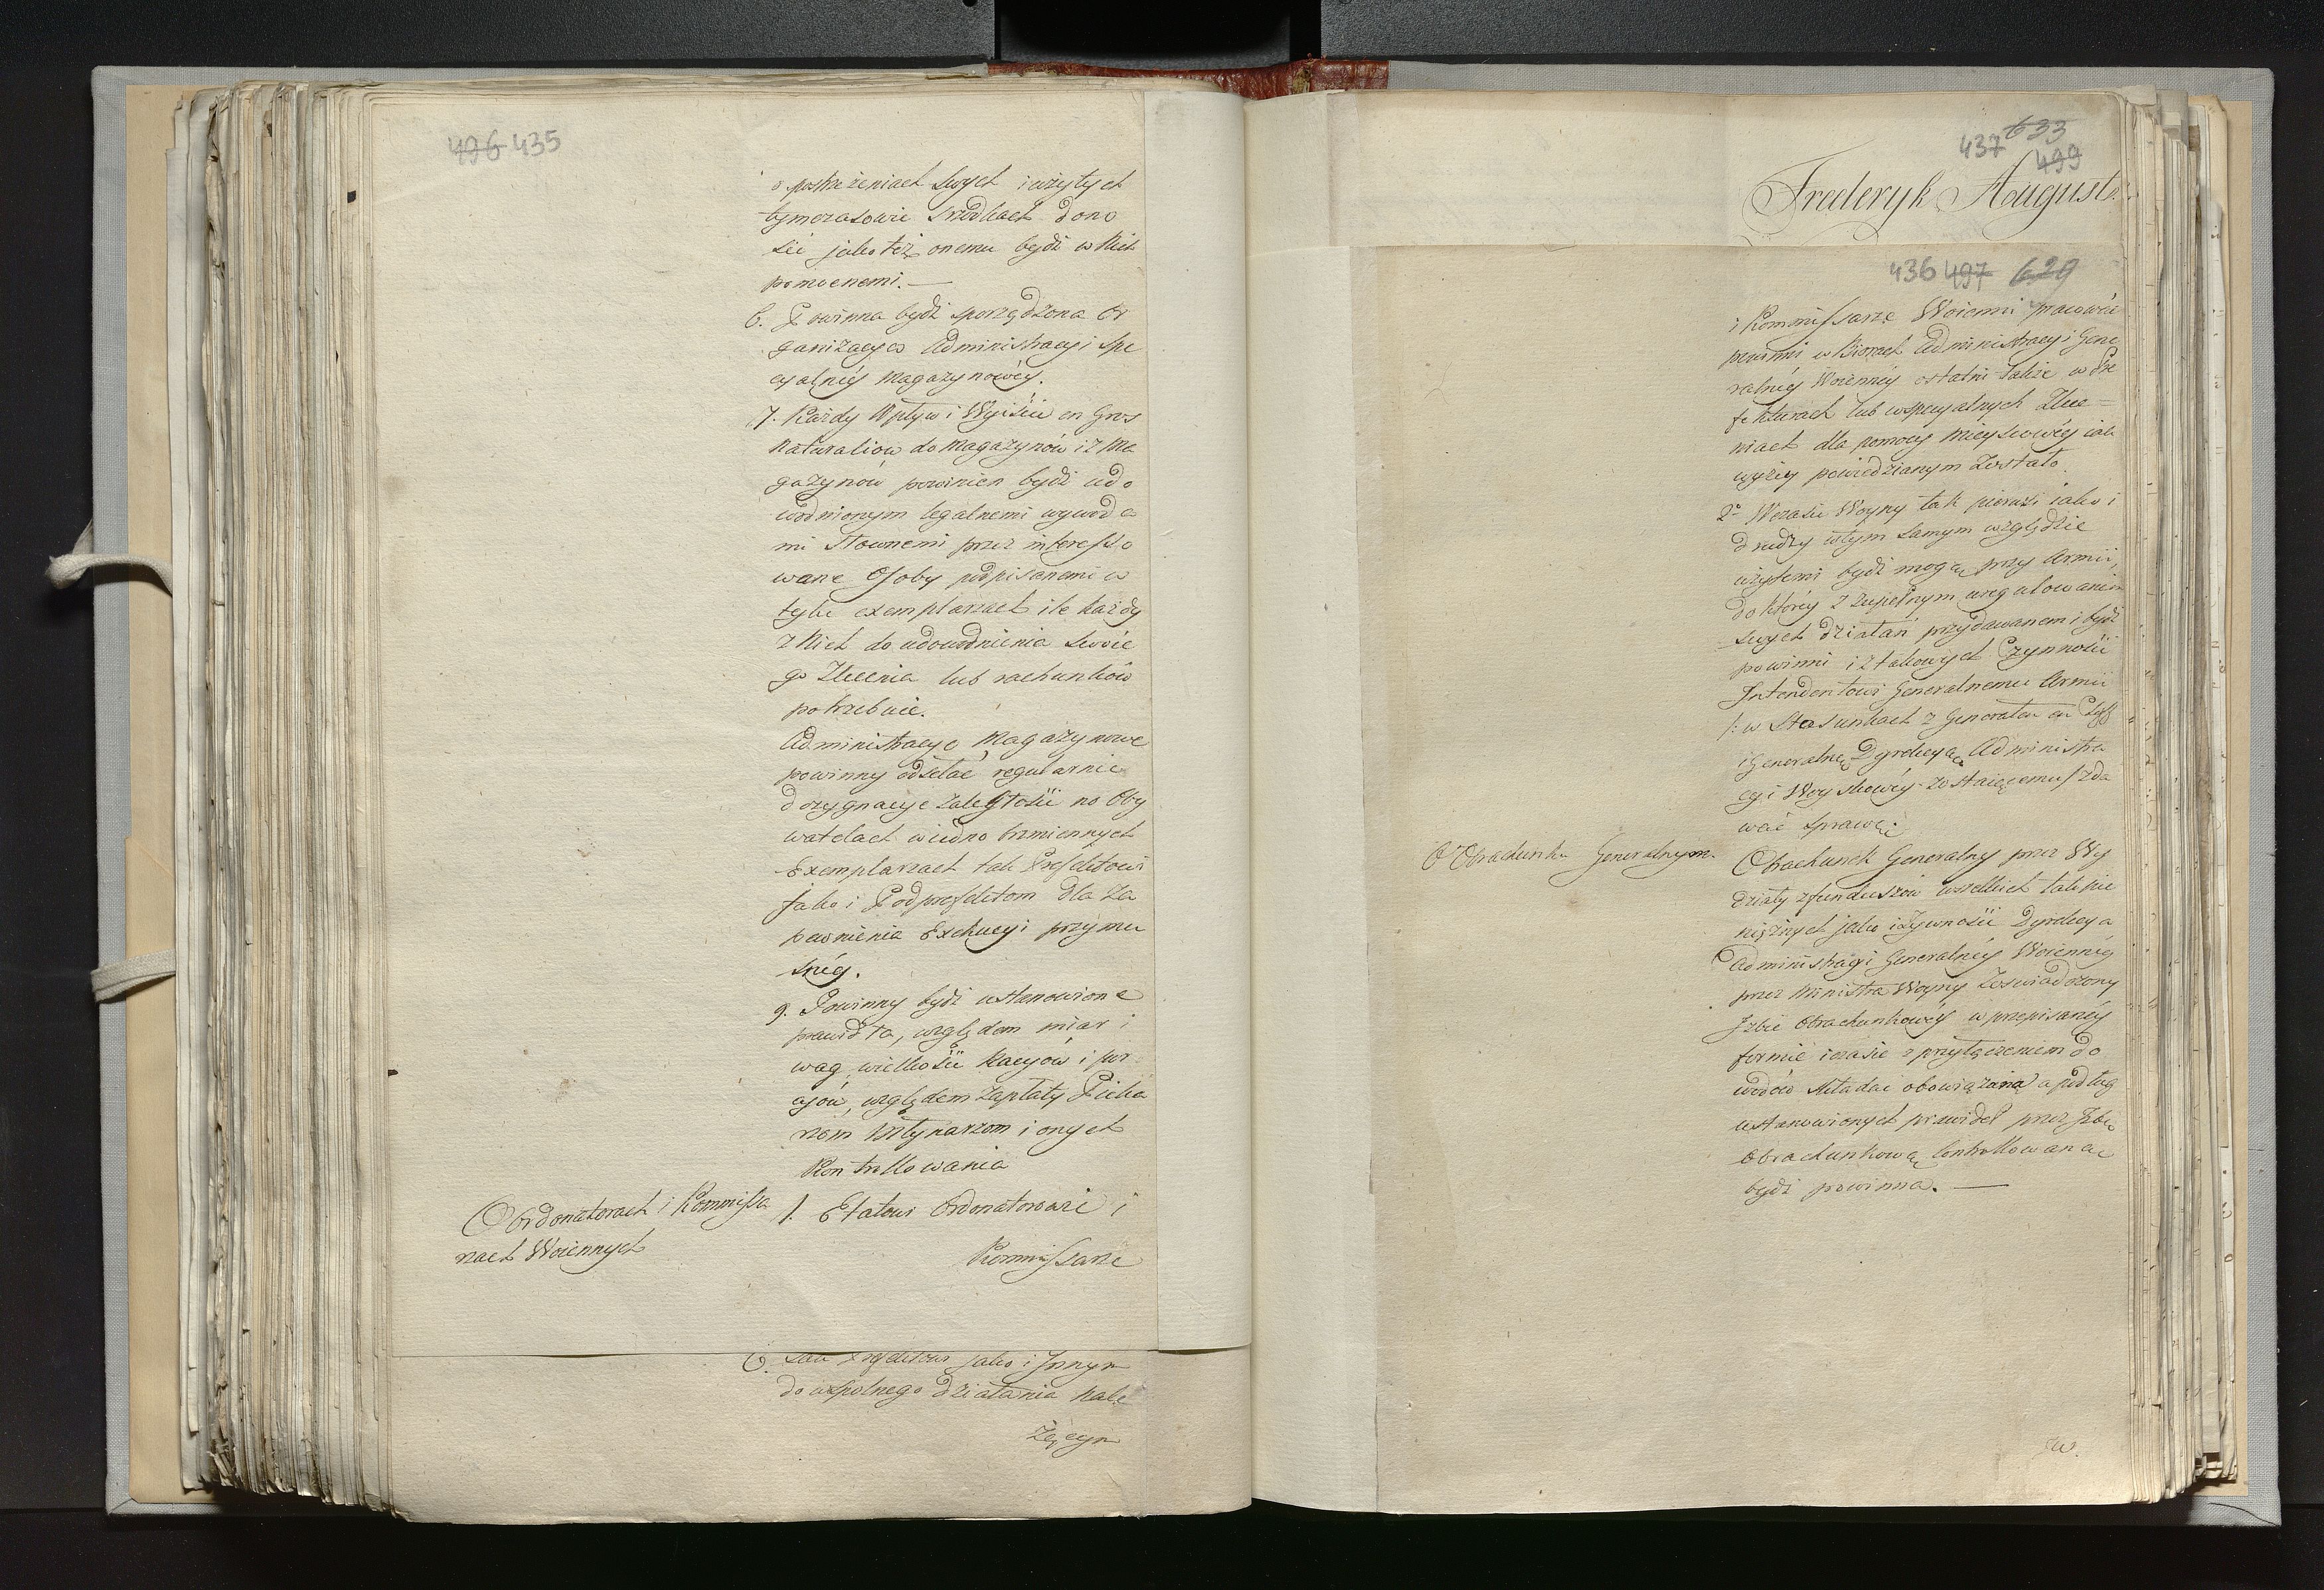 496 435
o postrzeżeniach swych i użytych
tymczasowie srzodkach dono
sić jako też onemu bydź w Nich
pomocnemi. —
6. Powinna bydź sporządzona Or
ganizacya Administracyi Spe
cyalnéy Magazynowéy.
7. Każdy Wpływ i Wyiście en Gros
Naturaliow do Magazynów i z Ma
gazynów powinien bydź udo
wodnionym legalnemi wywoda
mi Słownemi przez interesso
wane Osoby podpisanemi w
tylu exemplarzach ile każdy
z Nich do udowodnienia swoie
go Zlecenia lub rachunków
potrzebuie.
Administracye Magazynowe
powinny odsełać regularnie
dezygnacye zaległości na Oby
watelach w iedno brzmiennych
Exemplarzach tak Prefektowi
jako i Podprefektom dla Za
pewnienia Exekucyi przymu
snéy.
9. Powinny bydź ustanowione
prawidła, względem miar i
wag, wielkości Racyów i por
cyów, względem zapłaty Pieka
rzom Młynarzom i onych
Kontrollowania
O Ordonatorach i Kommissa
rzach Woiennych
1. Etatowi Ordonatorowie i
Kommissarze
6. tak Prefektowi jako i Innym
do wspolnego działania Nale
żącym
437 633
499
Frederyk August.
436 497 629
i Kommissarze Woienni pracować
powinni w Biorach Administracyi Gene
ralnéy Woiennéy ostatni także w Pre
fekturach lub w specyalnych Zlece=
niach dla pomocy Mieyscowéy iak
wyżéy powiedzianym zostało.
2o Wczasie Woyny tak pierwsi iako i
drudzy w tym samym względzie
użytemi bydź mogą przy Armii,
do któréy z zupełnym uregulowaniem
swych działań przydawanemi bydź
powinni i z takowych Czynności
Intendentowi Generalnemu Armii
/: w Stosunkach z Generałem en Chef
i Generalną Dyrekcyą Administra
cyi Woyskowéy zostaiącemu :/ zda
wać sprawę.
O Obrachunku Generalnym.
Obrachunek Generalny przez Wy
działy z funduszów wszelkich tak pie
niężnych jako i żywności Dyrekcya
Administracyi Generalnéy Woiennéy
przez Ministra Woyny Zaswiadczony
Izbie Obrachunkowéy w przepisanéy
formie i czasie z przyłączeniem do
wodów składać obowiązaną a podług
ustanowionych prawideł przez Izbę
Obrachunkową kontrollowaną
bydź powinna. —
W.